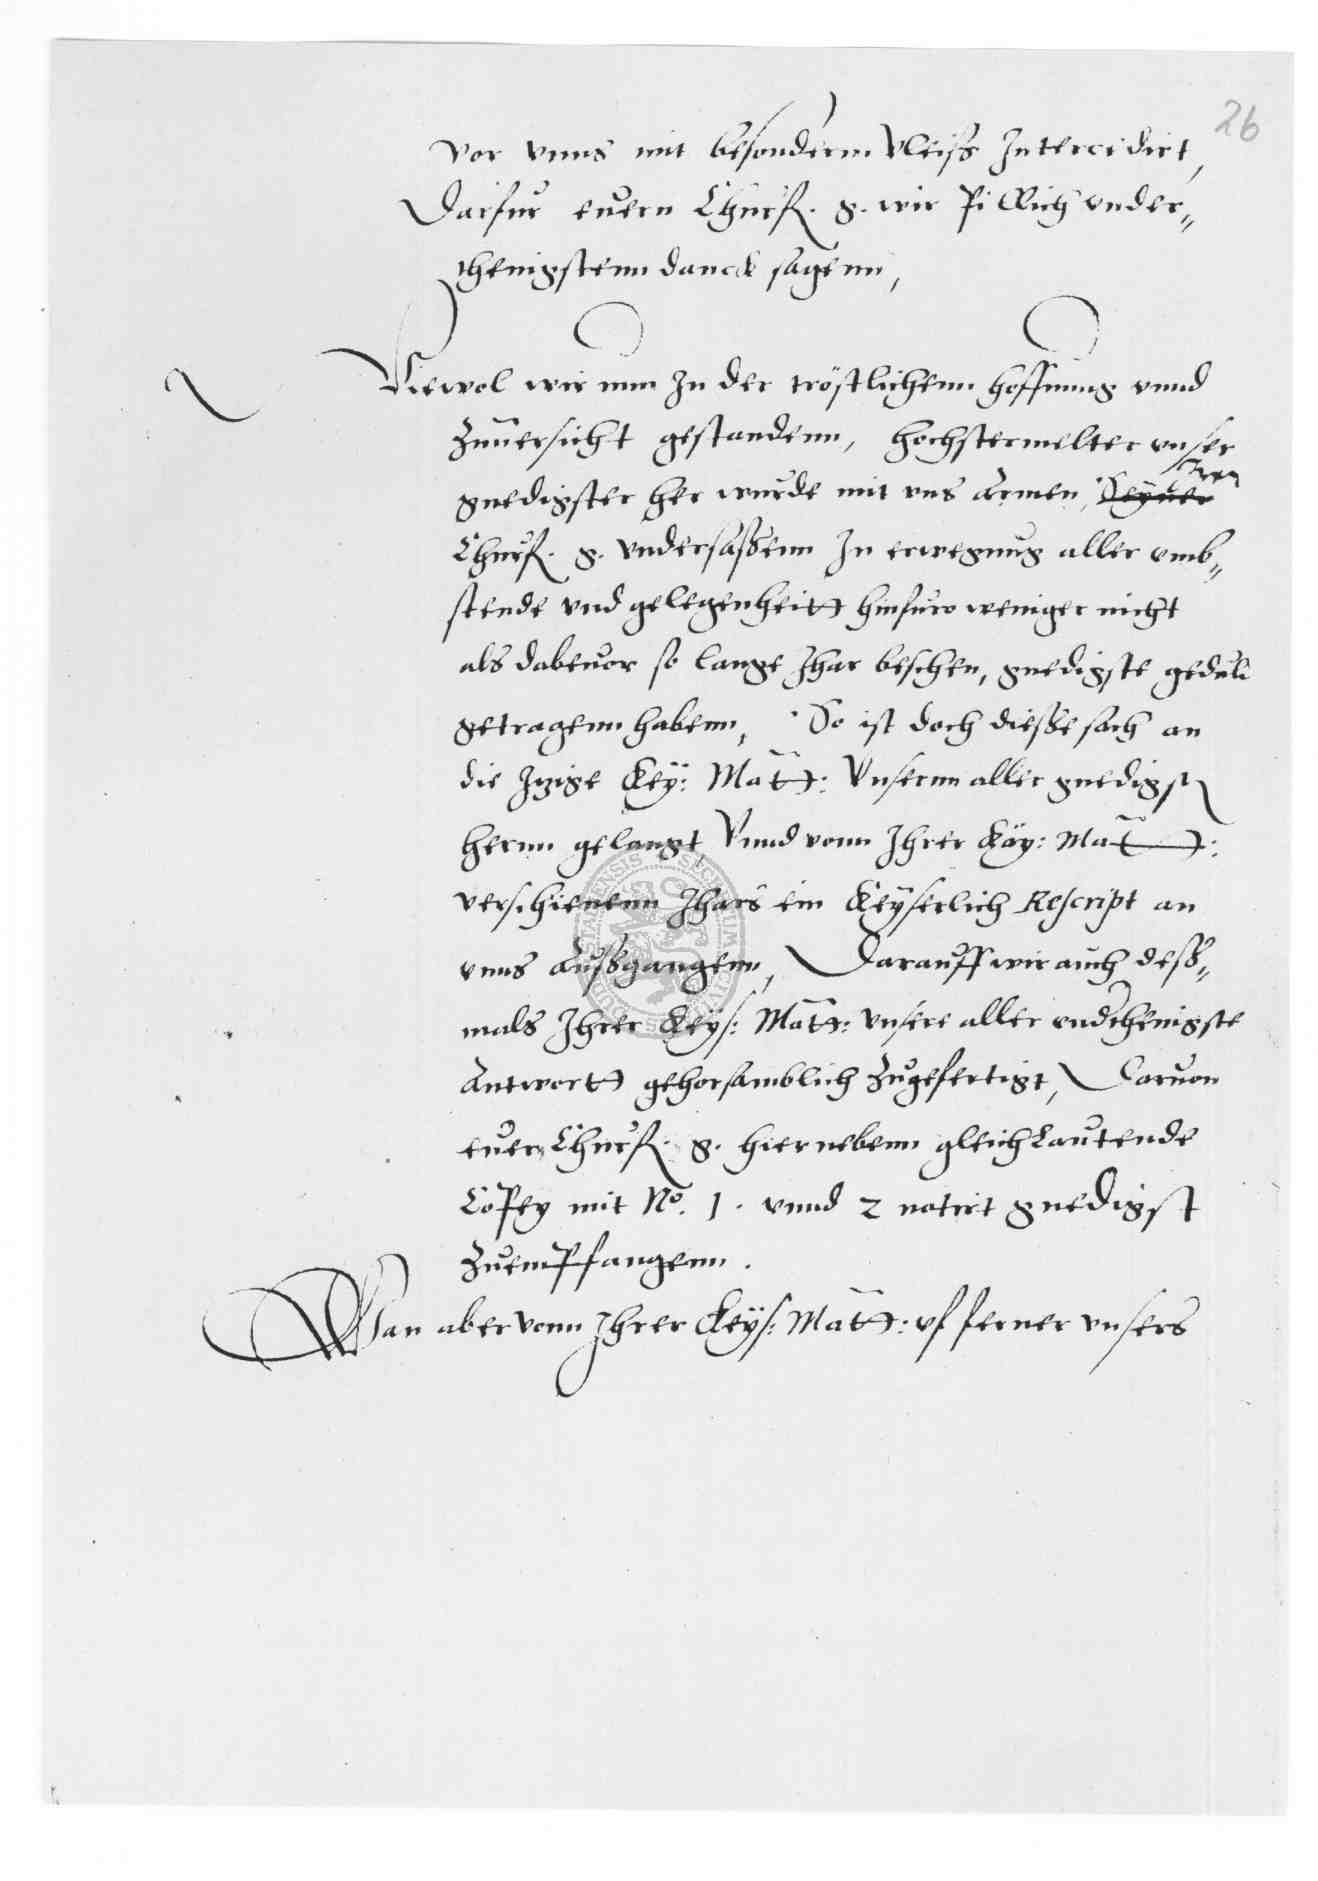 26
vor vnns mit besonderm vleiß Intercedirt,
Darfur euern Churf. g. wir pillich vnder-
thenigstenn danck sagenn,
Wiewol wir nun In der tröstlichenn hoffnung vnnd
Zuuersicht gestandenn, hochstermelter vnser
gnedigster her wurde mit vns Armen, Seyner Iren
Churf. g. Vndersaßenn In erwegung aller vmb-
stende vnd gelegenheitt hinfuro weniger nicht
als dabeuor so lange Jhar beschen, gnedigste geduld
getragenn habenn, So ist doch dieße sach an
die Jtzige Key: Matt: Vnsernn aller gnedigst
hernn gelangt, Vnnd vonn Ihrer Kay: Matt:
verschienenn Jhars ein Keyserlich Rescript an
vnns Außgangenn, Darauff wir auch deß-
mals Ihrer Keys: Matt: vnsere aller vnderthenigste
Antwortt gehorsamblich Zugefertigt, Daruon
euer Churf. g. hiernebenn gleichLautende
Copey mit No. 1. vnnd 2 notirt gnedigst
ZuemPfangenn.
Wan aber vonn Ihrer Keys: Matt: vf ferner vnsers